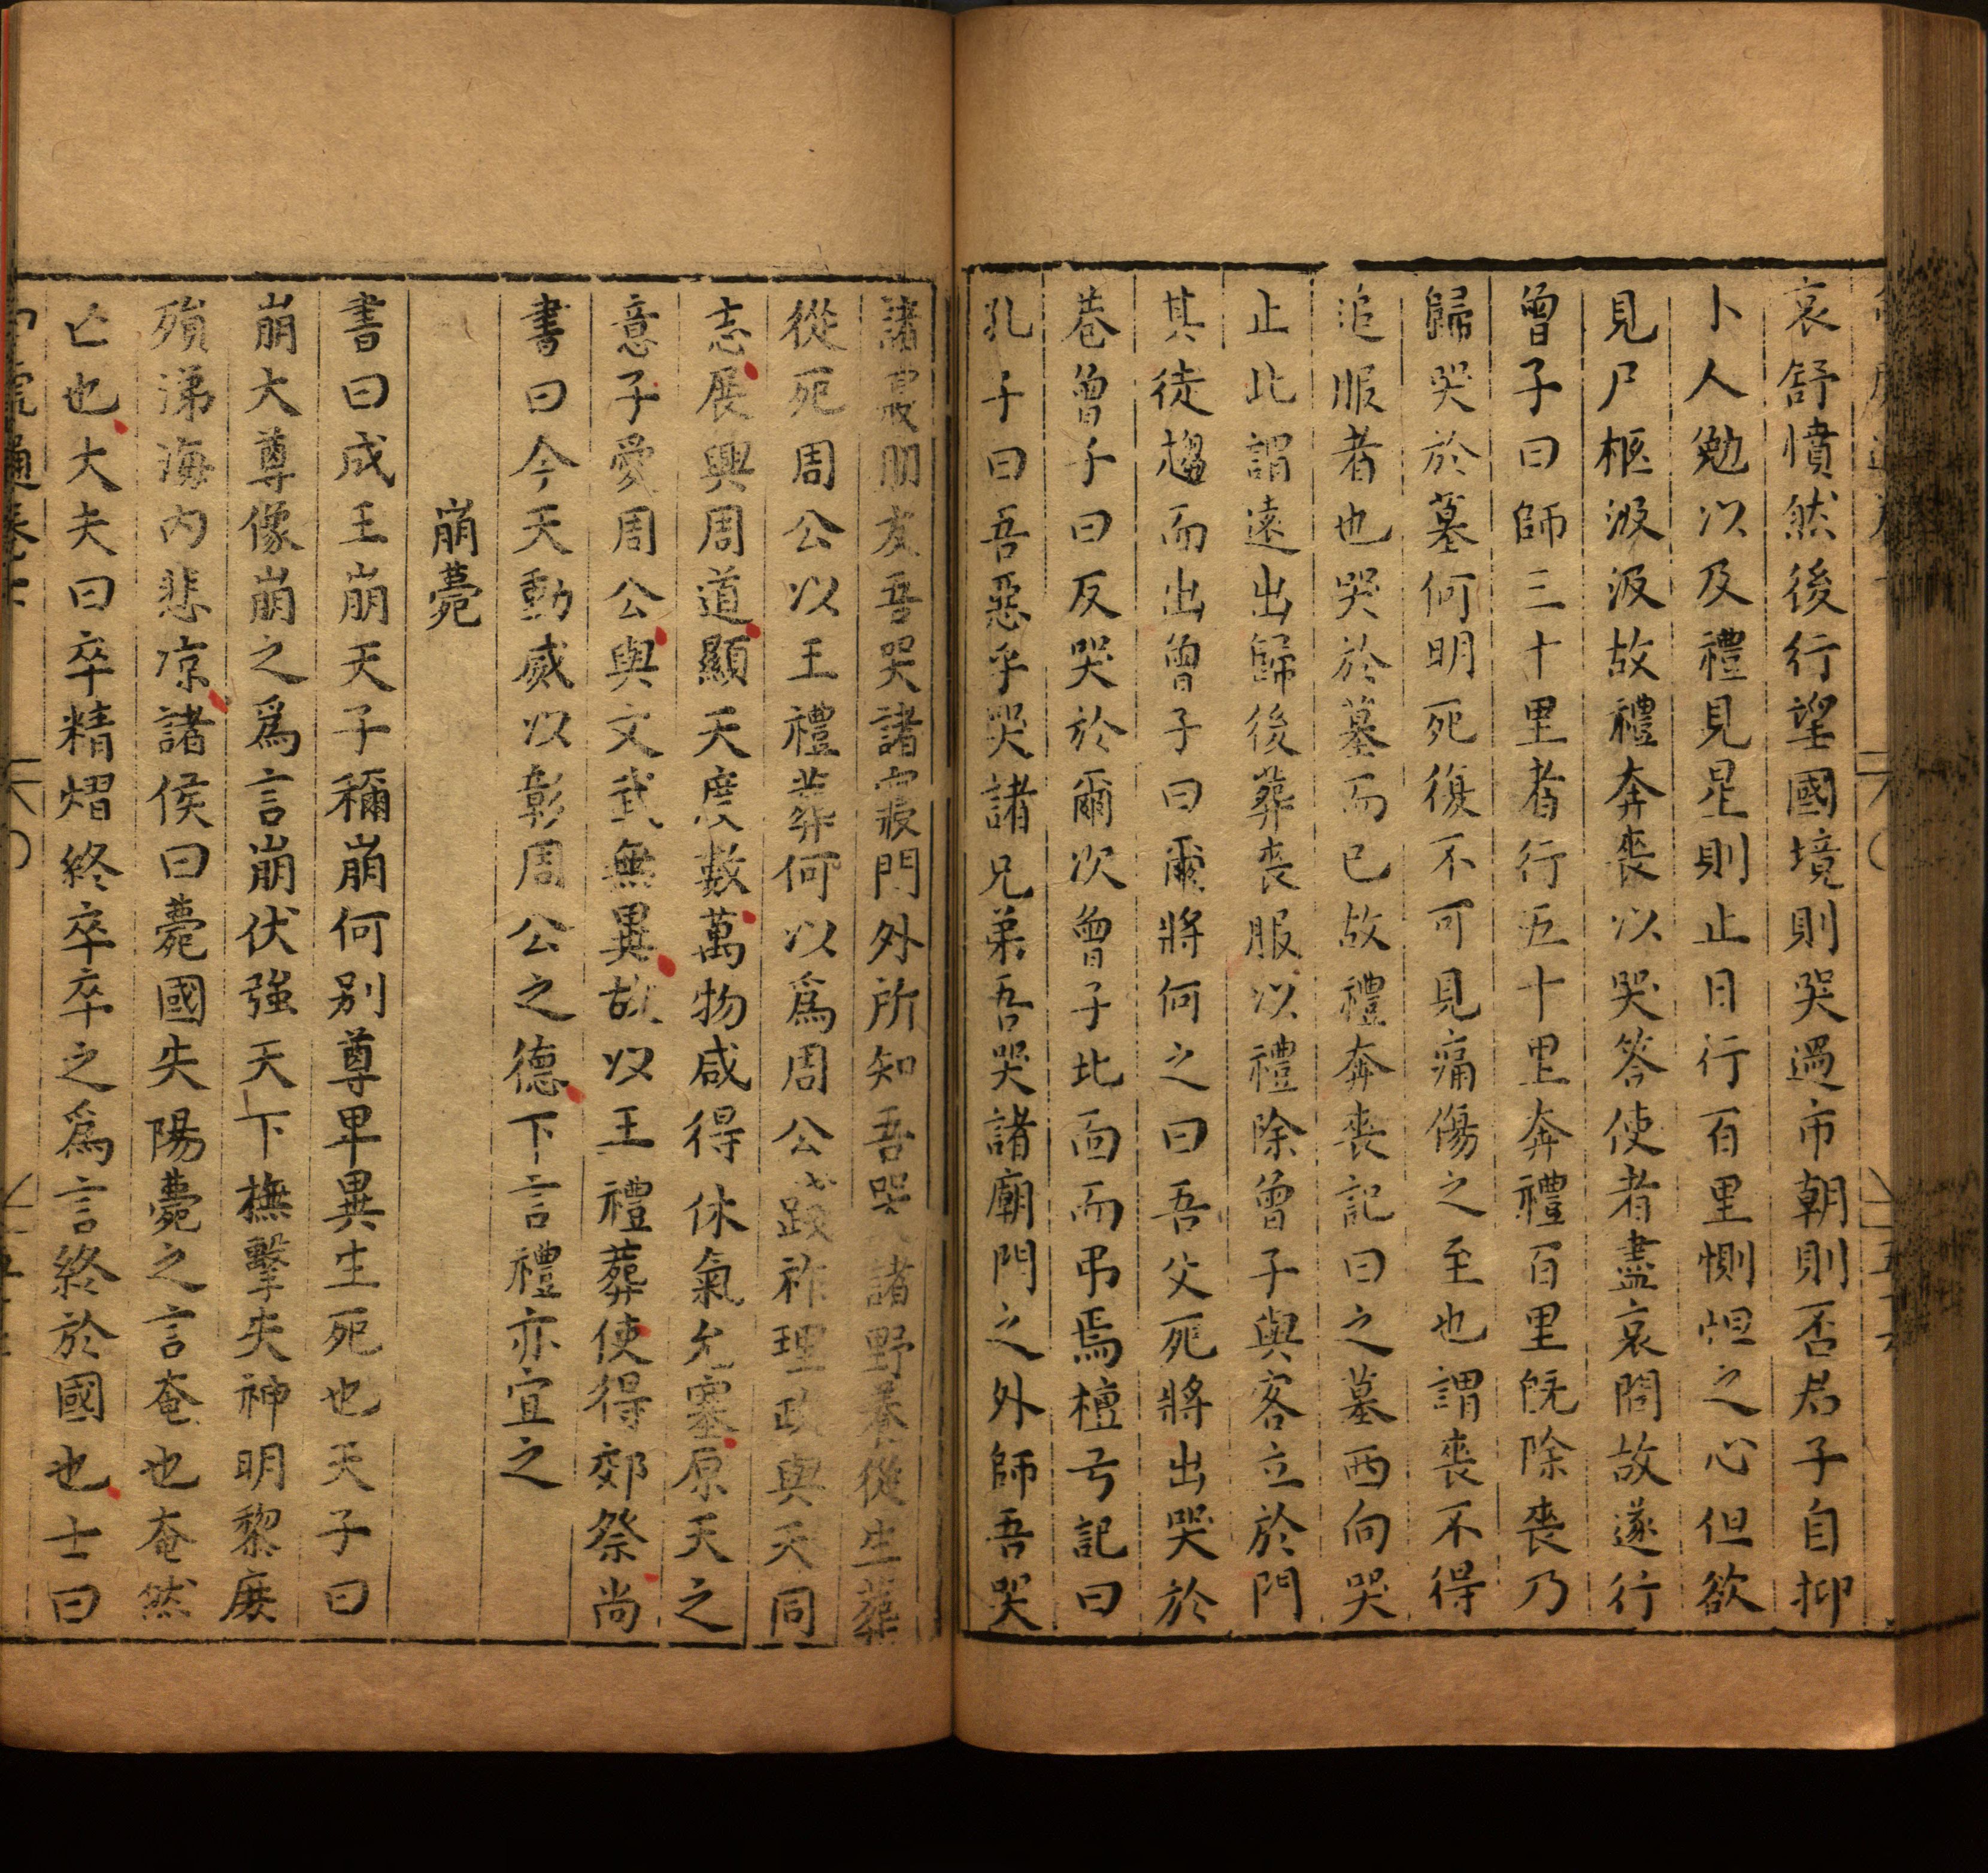 哀舒憤然後行望國境則哭過市朝則否君子自抑
小人勉以及禮見星則止日行百里惻怛之心但欲
見尸柩汲汲故禮奔喪以哭答使者盡哀問故遂行
曾子曰師三十里者行五十里奔禮百里旣除喪乃
歸哭於墓何明死復不可見痛傷之至也謂喪不得
追服者也哭於墓而已故禮奔喪記曰之墓西向哭
止此謂遠出歸後葬喪服以禮除曾子與客立於門
其徒趨而出曾子曰爾將何之曰吾父死將出哭於
巷曾子曰反哭於爾次曾子北面而弔焉檀弓記曰
孔子曰吾惡乎哭諸兄弟吾哭諸廟門之外師吾哭
諸寢朋友吾哭諸寢門外所知吾哭諸野養從生葬
從死周公以王禮葬何以爲周公踐祚理政與天同
志展興周道顯天度數萬物咸得休氣允塞原天之
意子愛周公與文武無異故以王禮葬使得郊祭尚
書曰今天動威以彰周公之德下言禮亦宜之
崩薨
書曰成王崩天子稱崩何别尊卑異生死也天子曰
崩大尊像崩之爲言崩伏強天下撫擊失神明黎庶
殞涕海内悲凉諸侯曰薨國失陽薨之言奄也奄然
亡也大夫曰卒精熠終卒卒之爲言終於國也士曰